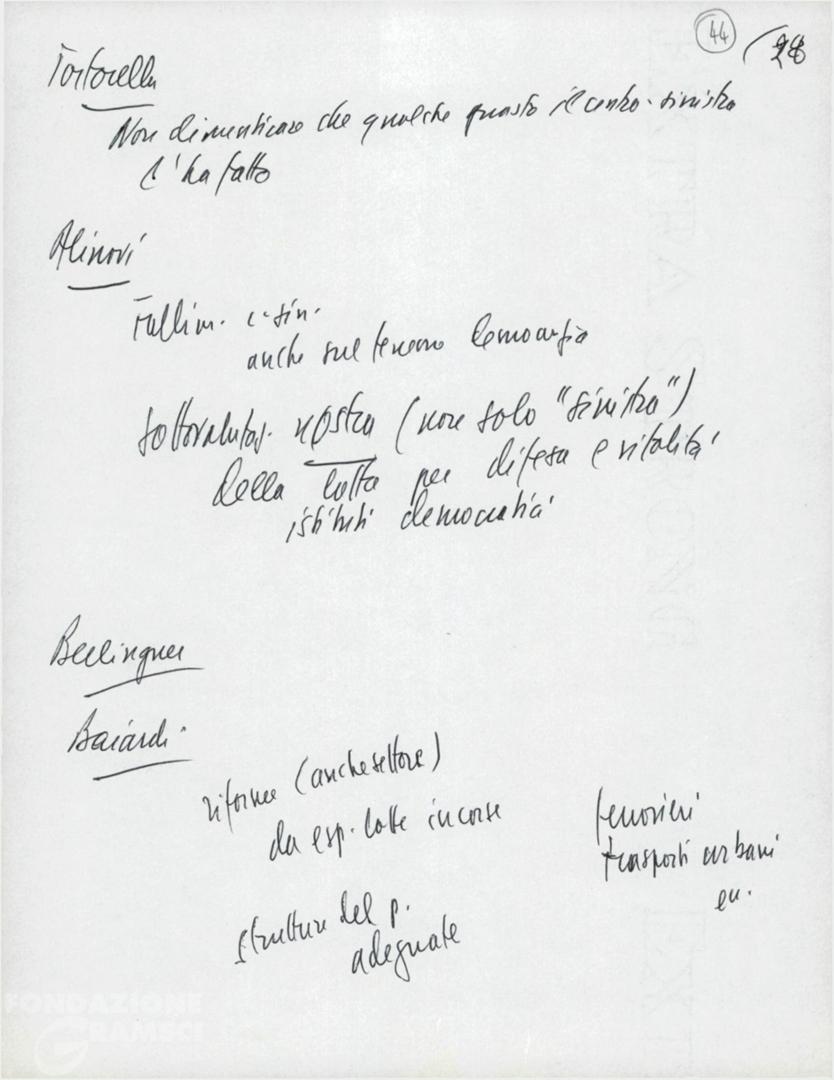 44
28
Tortorella
Non dimenticare che qualche guasto il centro-sinistra
l'ha fatto
Alinovi
Fallim. c-sin.
anche sul terreno democrazia
sottovalutaz. nostra (non solo "sinistra")
della lotta per difesa e vitalità
istituti democratici
Berlinguer
Baiardi
riforme (anche settore)
da esp. lotte in corse
ferrovieri
trasporti urbani
strutture del p.
adeguate
FONDAZIONE
GRAMSCI